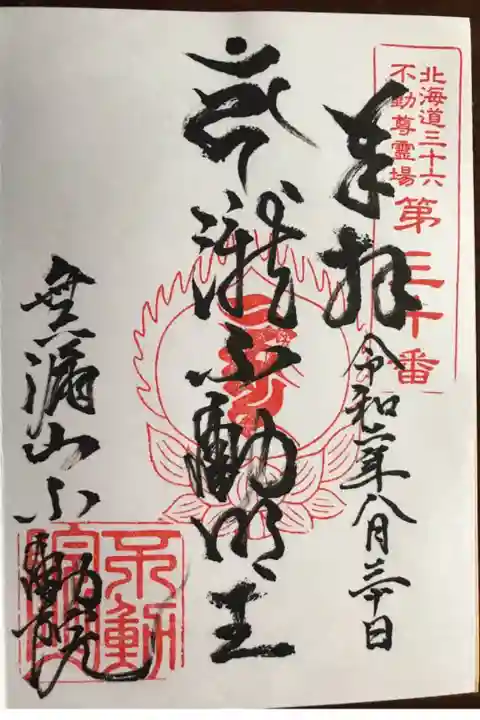 北海道三十六
不動尊霊場
第三十番
奉拝
令和二年八月三十日
瀧不動明王
無漏山不動院
不動
院